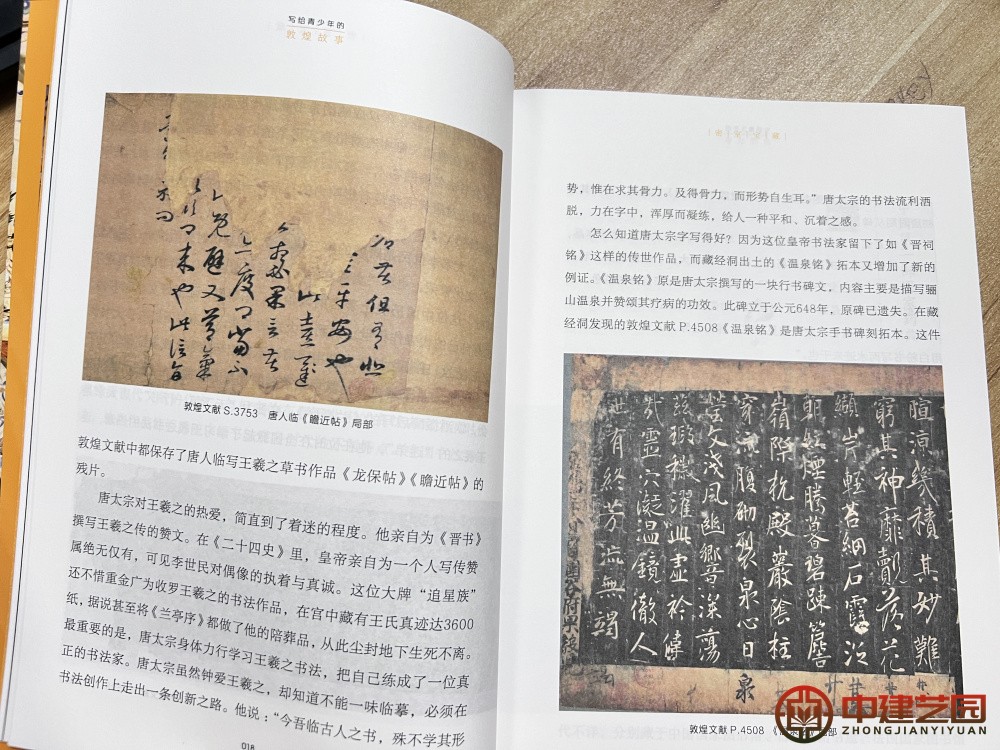 写给青少年的
敦煌故事
告但有悲
悉平安也
此喜遲
必果言告
亦度卿當不
既避又節氣
以欣卿來也此信旨
示問
敦煌文献 S.3753 唐人临《瞻近帖》局部
敦煌文献中都保存了唐人临写王羲之草书作品《龙保帖》《瞻近帖》的
残片。
唐太宗对王羲之的热爱，简直到了着迷的程度。他亲自为《晋书》
撰写王羲之传的赞文。在《二十四史》里，皇帝亲自为一个人写传赞
属绝无仅有，可见李世民对偶像的执着与真诚。这位大牌“追星族”
还不惜重金广为收罗王羲之的书法作品，在宫中藏有王氏真迹达3600
纸，据说甚至将《兰亭序》都做了他的陪葬品，从此尘封地下生死不离。
最重要的是，唐太宗身体力行学习王羲之书法，把自己练成了一位真
正的书法家。唐太宗虽然钟爱王羲之，却知道不能一味临摹，必须在
书法创作上走出一条创新之路。他说：“今吾临古人之书，殊不学其形
018
势，惟在求其骨力。及得骨力，而形势自生耳。”唐太宗的书法流利洒
脱，力在字中，浑厚而凝练，给人一种平和、沉着之感。
怎么知道唐太宗字写得好？因为这位皇帝书法家留下了如《晋祠
铭》这样的传世作品，而藏经洞出土的《温泉铭》拓本又增加了新的
例证。《温泉铭》原是唐太宗撰写的一块行书碑文，内容主要是描写骊
山温泉并赞颂其疗病的功效。此碑立于公元648年，原碑已遗失。在藏
经洞发现的敦煌文献 P.4508《温泉铭》是唐太宗手书碑刻拓本。这件
暄涼幾積其妙難
窮其神靡觀落花
纈岸輕苔網石霞泛
朝紅煙騰暮碧疎簷
嶺際抗殿巖陰柱
穿流腹砌裂泉心日
瑩文淺風幽響深蕩
茲瑕穢濯此虛衿偉
哉靈穴凝溫鏡徹人
世有終芳流無竭
谷府果毅
泉
敦煌文献 P.4508 《温泉铭》局部
中建艺园
ZHONGJIANYIYUAN